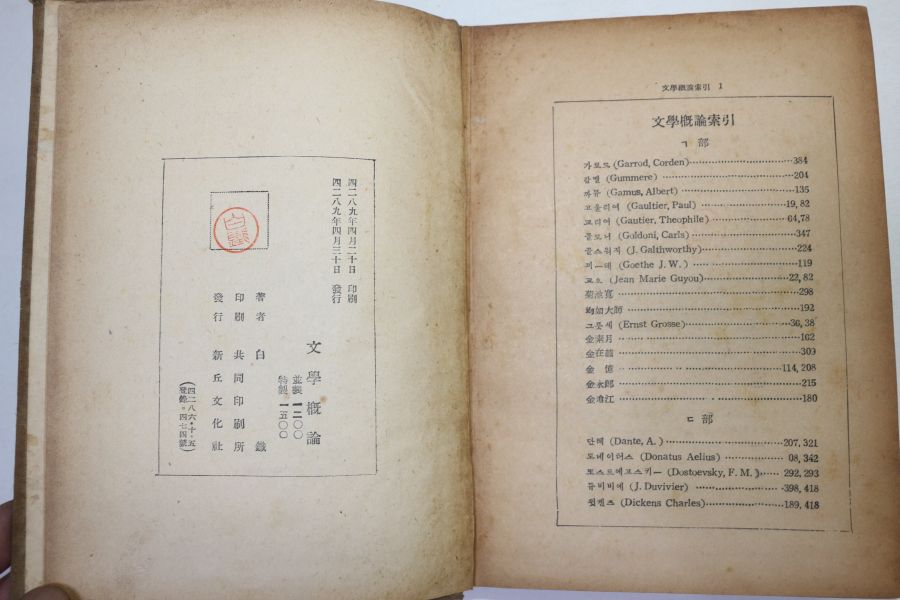 四二八九年四月二十日 印刷
四二八九年四月三十日 發行
文學槪論
並製 一二〇〇
特製 一五〇〇
著者 白 鐵
印刷 共同印刷所
發行 新丘文化社
(四二八六・十・五
登錄・四七四號)
文學槪論索引 1
文學槪論索引
ㄱ 部
가로드 (Garrod, Corden) 384
깜멜 (Gummere) 204
까뮤 (Gamus, Albert) 135
고울티에 (Gaultier, Paul) 19, 82
(Gautier, Theophile) 64,78
골도니 (Goldoni, Carls) 347
골스워지 (J. Galthworthy) 224
꾀ー테 (Goethe J. W.) 119
(Jean Marie Guyou) 22,82
菊池寬 298
均如大師 192
그롯세 (Ernst Grosse) 36,38
金素月 162
金在喆 309
金 億 114, 208
金永郞 215
金尙江 180
ㄷ 部
단테 (Dante, A.) 207, 321
도네이터스 (Donatus Aelius) 08, 342
또스트에프스키ー (Dostoevsky, F. M.) 292, 293
듀비비에 (J. Duvivier) 398, 418
띡켄즈 (Dickens Charles) 189, 418